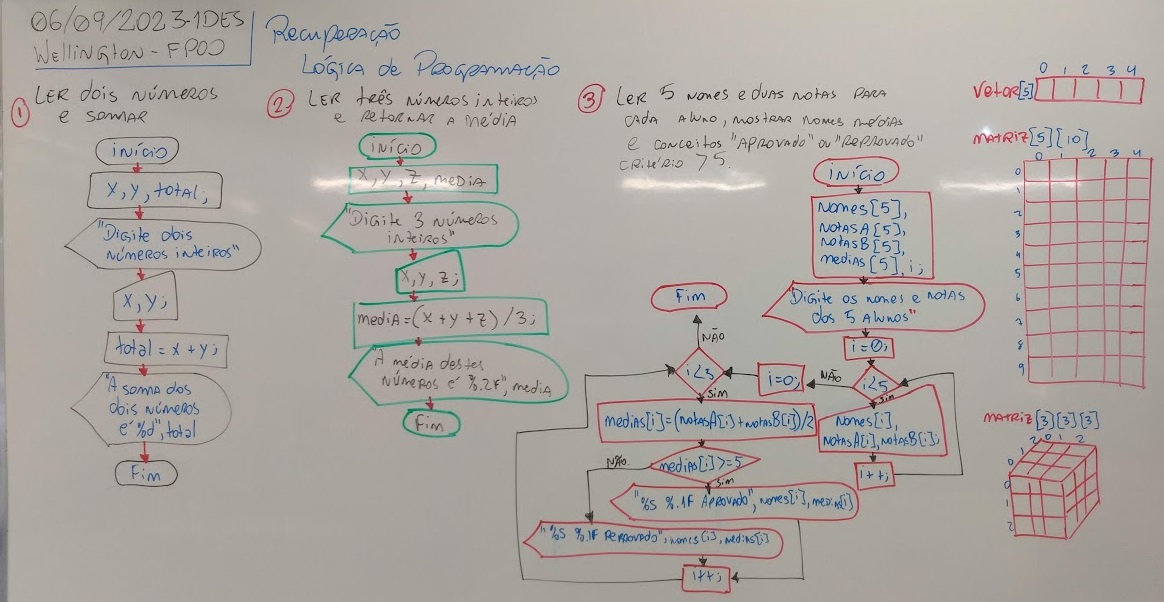 06/09/2023-1DES
Wellington - FPOO
Recuperação
Lógica de Programação
1
Ler dois números
e somar
início
X, Y, total;
"Digite dois
números inteiros"
X, Y;
total = x + y;
"A soma dos
dois números
é %d", total
Fim
2
Ler três números inteiros
e retornar a média
início
X, Y, Z, media
"Digite 3 números
inteiros"
X, Y, Z;
media = (x + y + z) / 3;
"A média destes
números é %.2f", media
Fim
3
Ler 5 nomes e duas notas para
cada aluno, mostrar nomes médias
e conceitos "Aprovado" ou "Reprovado"
critério 75.
início
nomes[5],
notasA[5],
notasB[5],
medias[5], i;
"Digite os nomes e notas
dos 5 alunos"
i=0;
i<5
NÃO
sim
nomes[i],
notasA[i], notasB[i];
i++;
i=0;
i<3
NÃO
Fim
sim
medias[i]=(notasA[i]+notasB[i])/2
medias[i]>=5
NÃO
sim
"%s %.1f Aprovado", nomes[i], medias[i]
"%s %.1f Reprovado", nomes[i], medias[i]
i++;
0 1 2 3 4
Vetor[5]
Matriz[5][10]
0 1 2 3 4
0
1
2
3
4
5
6
7
8
9
Matriz[3][3][3]
2 0 1 2
1
0
0
1
2